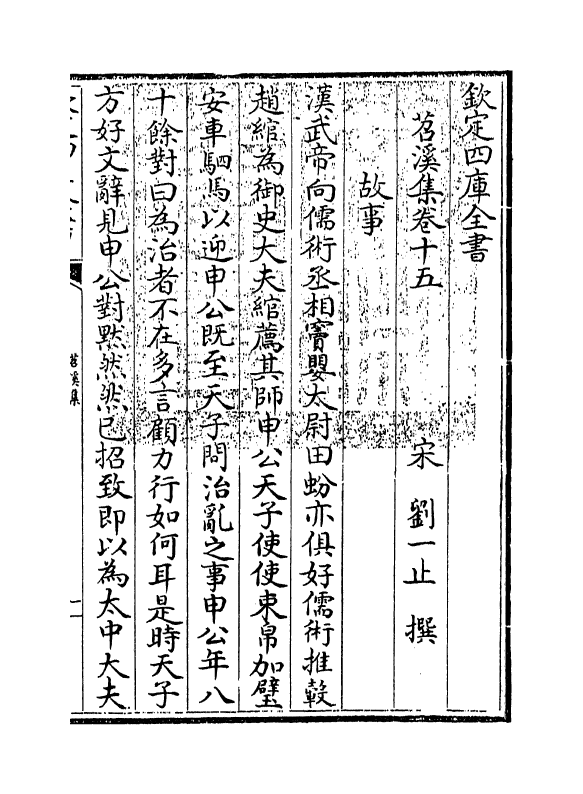 欽定四庫全書
苕溪集卷十五
宋 劉一止 撰
故事
漢武帝向儒術丞相竇嬰太尉田蚡亦俱好儒術推轂
趙綰為御史大夫綰薦其師申公天子使使束帛加璧
安車駟馬以迎申公既至天子問治亂之事申公年八
十餘對曰為治者不在多言顧力行如何耳是時天子
方好文辭見申公對默然然已招致即以為太中大夫
苕溪集
一